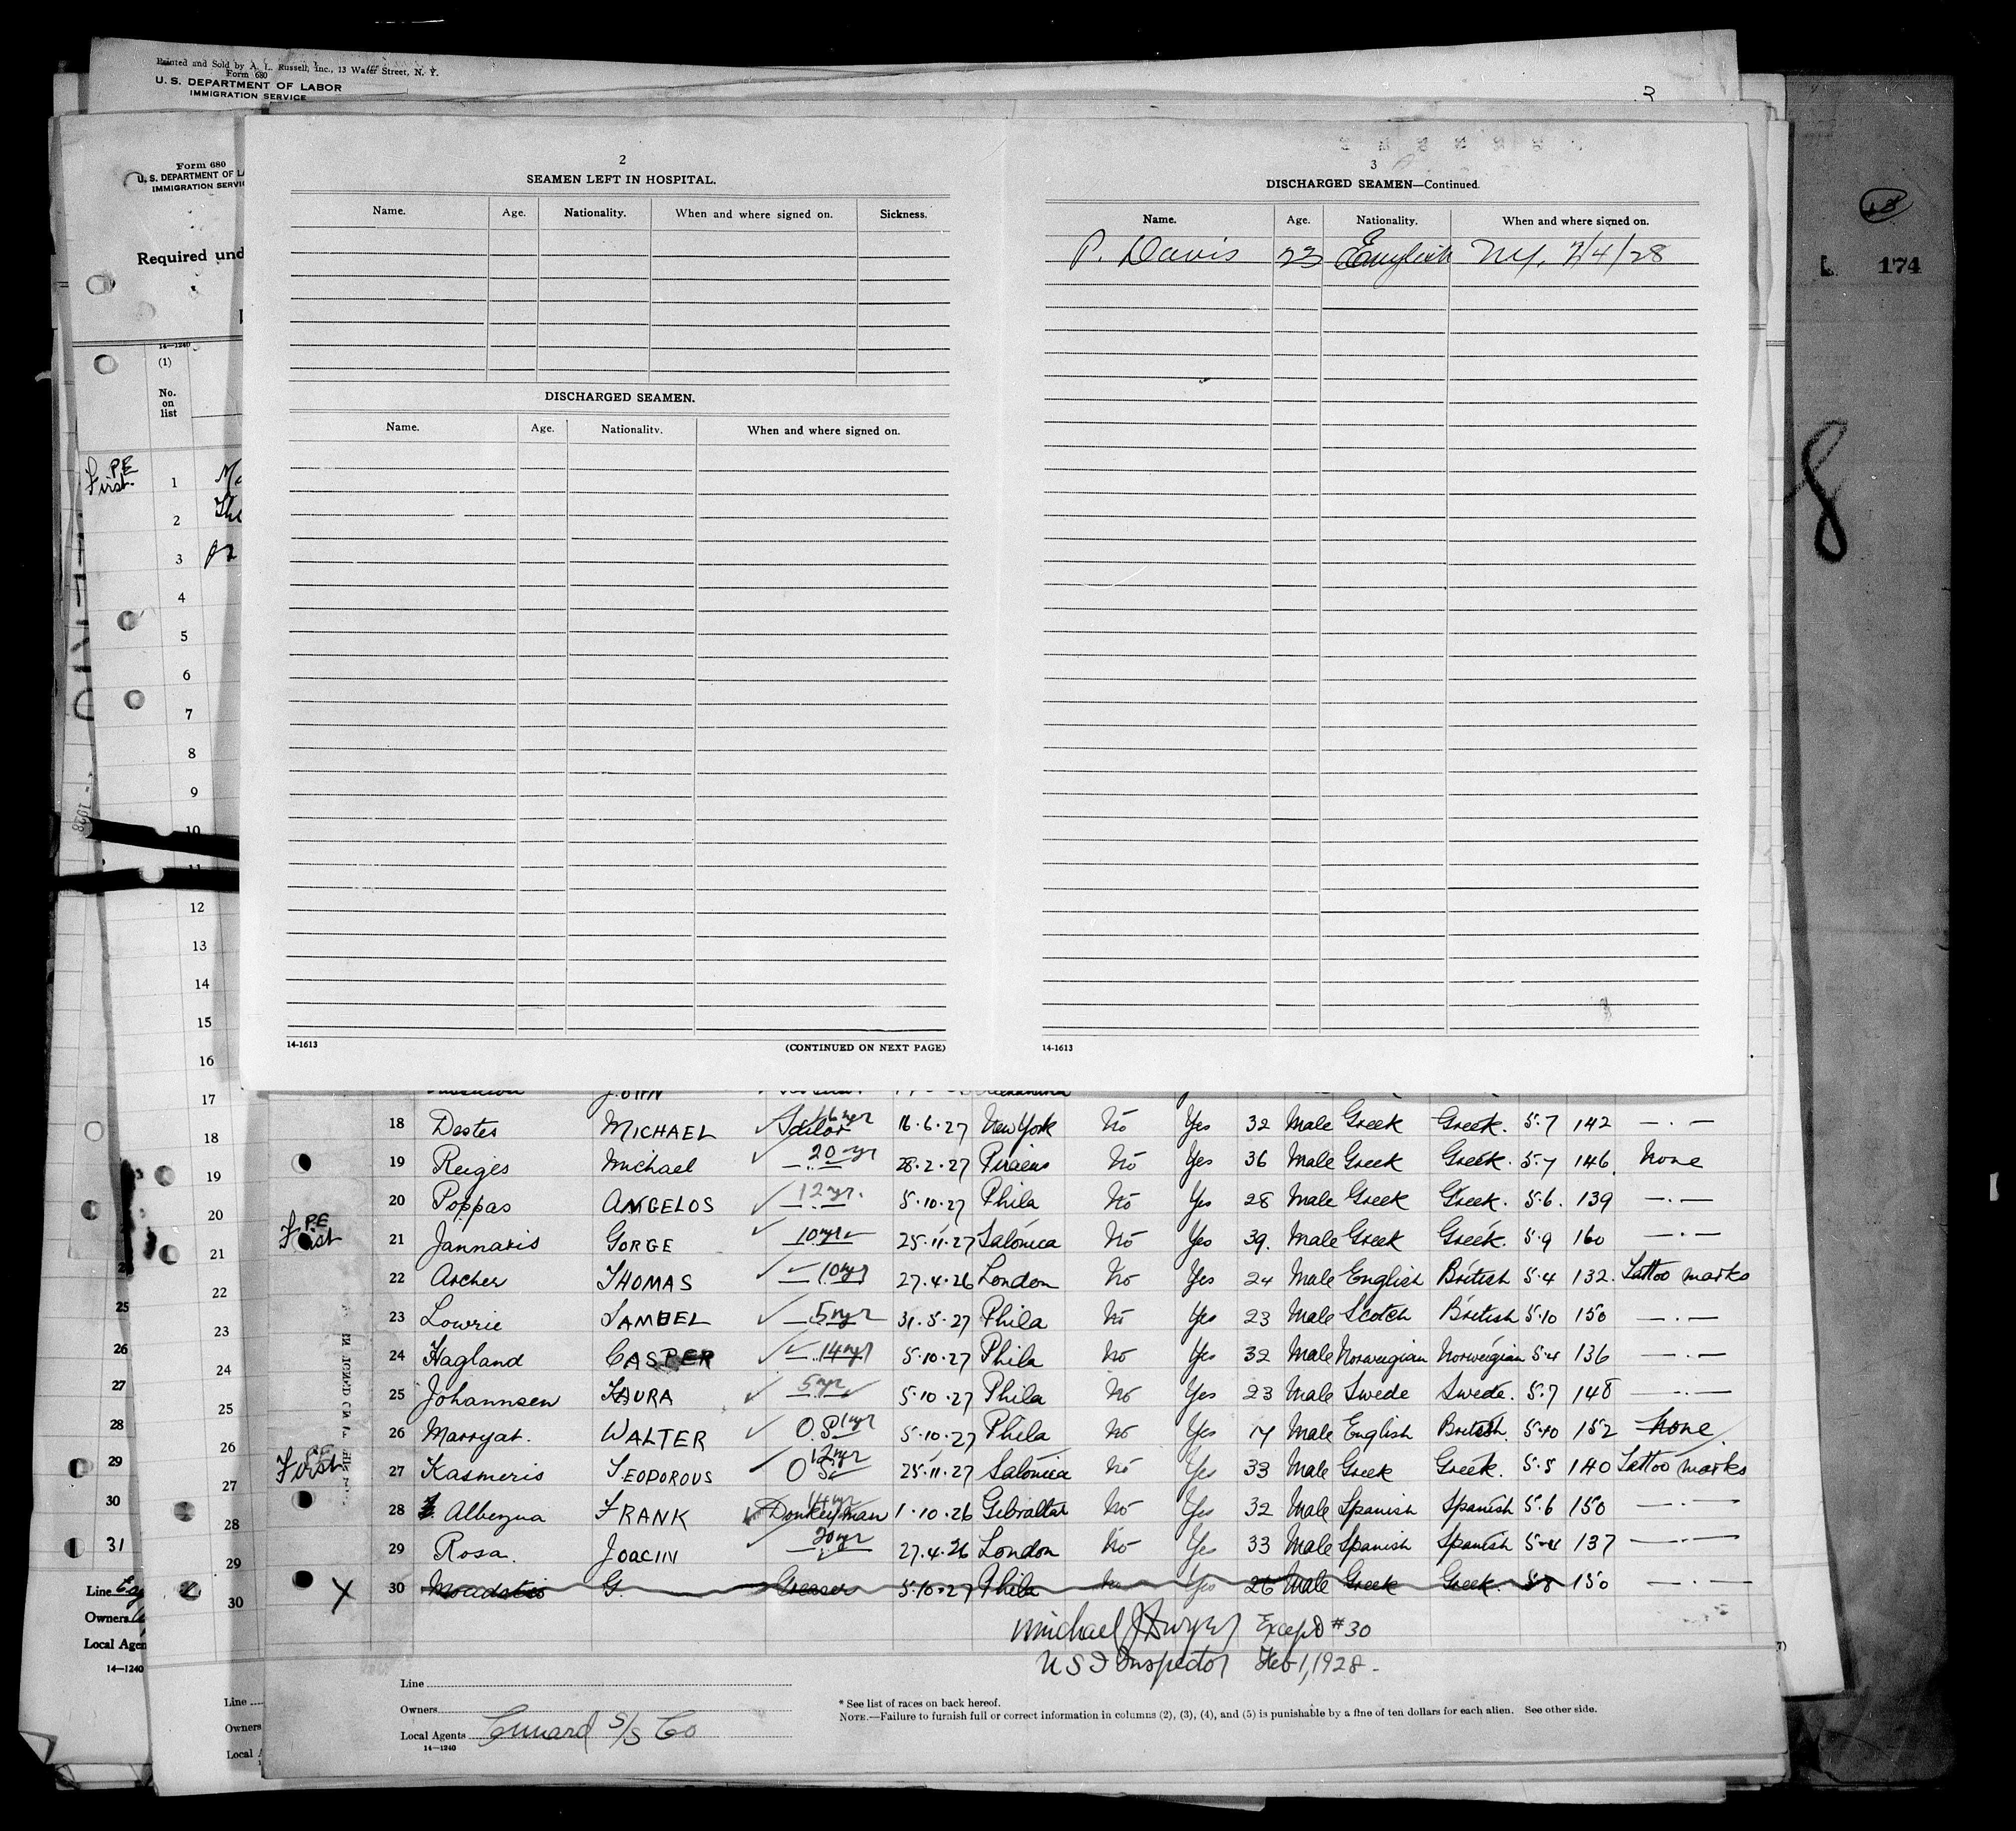 Printed and Sold by A. L. Russell, Inc., 13 Water Street, N. Y.
Form 680
U. S. DEPARTMENT OF LABOR
IMMIGRATION SERVICE
3
Form 680
U. S. DEPARTMENT OF LA
IMMIGRATION SERVIC
Required und
14—1240
(1)
No.
on
list
PE
First
1
2
3
4
5
6
7
8
9
10
11
12
13
14
15
16
17
18
19
20
21
22
23
24
25
26
27
28
29
30
2
SEAMEN LEFT IN HOSPITAL.
Name. Age. Nationality. When and where signed on. Sickness.
DISCHARGED SEAMEN.
Name. Age. Nationality. When and where signed on.
14-1613 (CONTINUED ON NEXT PAGE)
3
DISCHARGED SEAMEN—Continued.
Name. Age. Nationality. When and where signed on.
P. Davis 23 English NY. 2/4/28
14-1613
174
8
JOHN
18 Destes MICHAEL Sailor 16 yr 16.6.27 New York No Yes 32 Male Greek Greek. 5.7 142 — . —
19 Reiges Michael 20 yr 28.2.27 Piraeus No Yes 36 Male Greek Greek. 5.7 146. None
20 Poppas ANGELOS 12 yr. 5.10.27 Phila No Yes 28 Male Greek Greek. 5.6. 139 — . —
PE First 21 Jannaris GORGE 10 yr 25.11.27 Salonica No Yes 39. Male Greek Greek. 5.9 160 — . —
22 Archer THOMAS 10 yr 27.4.26 London No Yes 24 Male English British 5.4 132. Tattoo marks
23 Lowrie SAMUEL 5 yr 31.5.27 Phila No Yes 23 Male Scotch British 5.10 150 — . —
24 Hagland CASPER 14 yr 5.10.27 Phila No Yes 32 Male Norweigian Norweigian 5.4 136 — . —
25 Johannsen KAURA 5 yr 5.10.27 Phila No Yes 23 Male Swede Swede. 5.7 148 — . —
26 Marryat. WALTER O.S. 1 yr 5.10.27 Phila No Yes 17 Male English British. 5.10 152 None
PE First 27 Kasmeris TEODOROUS O S 12 yr 25.11.27 Salonica No Yes 33 Male Greek Greek. 5.5 140 Tattoo marks
28 FRANK Donkeyman 14 yr 1.10.26 Gibraltar No Yes 32 Male Spanish Spanish 5.6 150 — . —
29 Rosa. JOACIN 20 yr 27.4.26 London No Yes 33 Male Spanish Spanish 5.4 137 — . —
X 30 G. Greaser 5.10.27 Phila No Yes 26 Male Greek Greek. 5.8 150 — . —
Michael J Dwyer Except #30
U S I Inspector Feb 1, 1928.
Line
Owners
Local Agents Cunard S/S Co
14—1240
* See list of races on back hereof.
NOTE.—Failure to furnish full or correct information in columns (2), (3), (4), and (5) is punishable by a fine of ten dollars for each alien. See other side.
25
26
27
28
29
30
31
Line
Owners
Local Agen
14—1240
Line
Owners
Local A